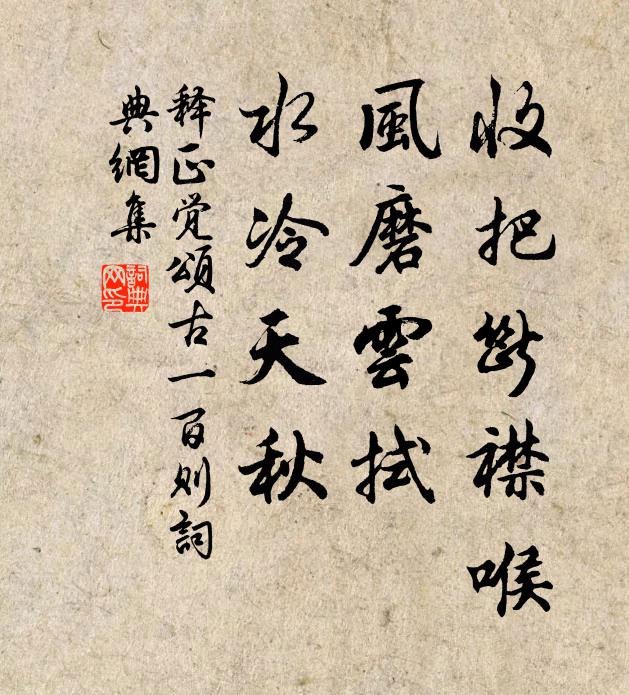 收把斷襟喉
風磨雲拭
水冷天秋
释正觉頌古一百则詞
典網集
詞典網印